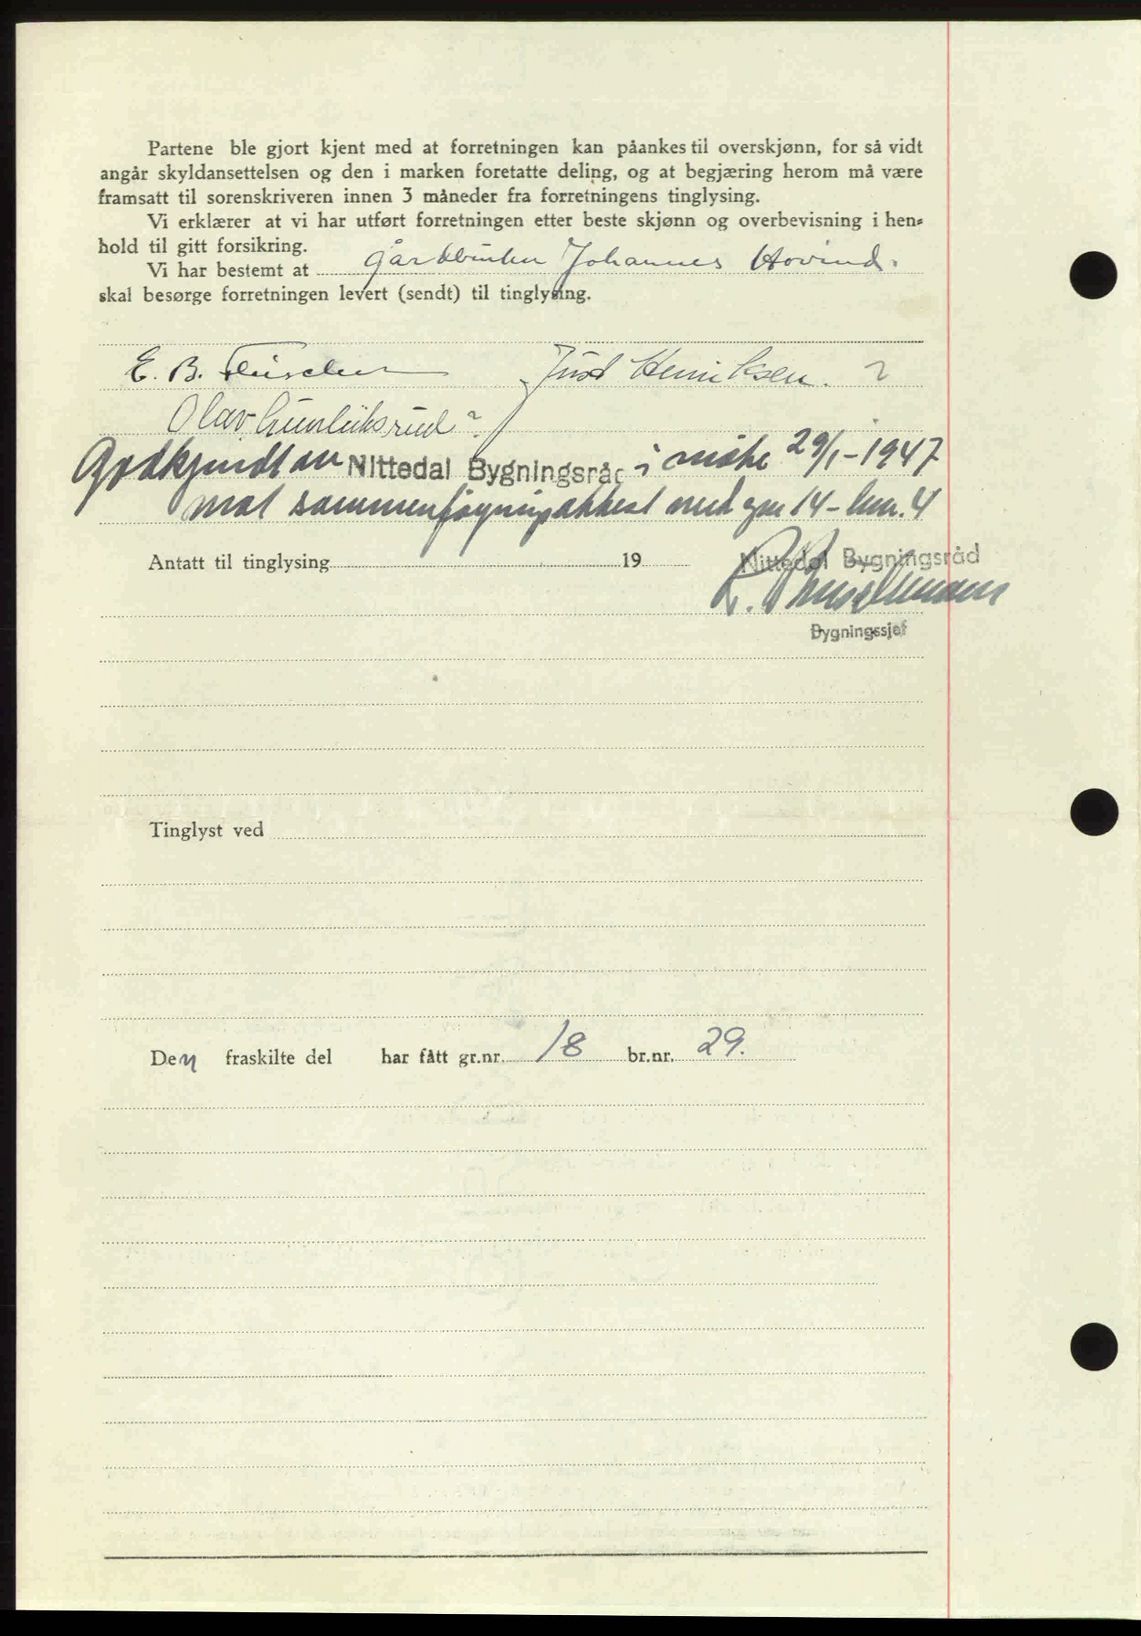 Partene ble gjort kjent med at forretningen kan påankes til overskjønn, for så vidt
angår skyldansettelsen og den i marken foretatte deling, og at begjæring herom må være
framsatt til sorenskriveren innen 3 måneder fra forretningens tinglysing.
Vi erklærer at vi har utført forretningen etter beste skjønn og overbevisning i hen-
hold til gitt forsikring.
Vi har bestemt at gårdbruker Johannes Hovind.
skal besørge forretningen levert (sendt) til tinglysing.
E. B. Just Henriksen.
Olav
Godkjendt av Nittedal Bygningsråd i møte 29/1-1947
mot sammenføyningsattest med gnr 14 - bnr. 4
Antatt til tinglysing 19 Nittedal Bygningsråd
Bygningssjef
Tinglyst ved
Den fraskilte del har fått gr.nr. 18 br.nr. 29.